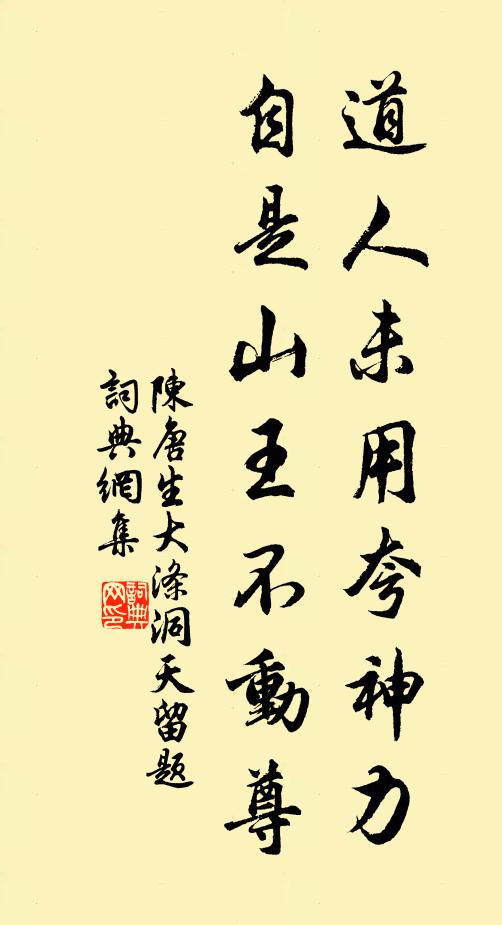 道人未用夸神力
自是山王不動尊
陳唐生大涤洞天留题
詞典網集
詞典网印